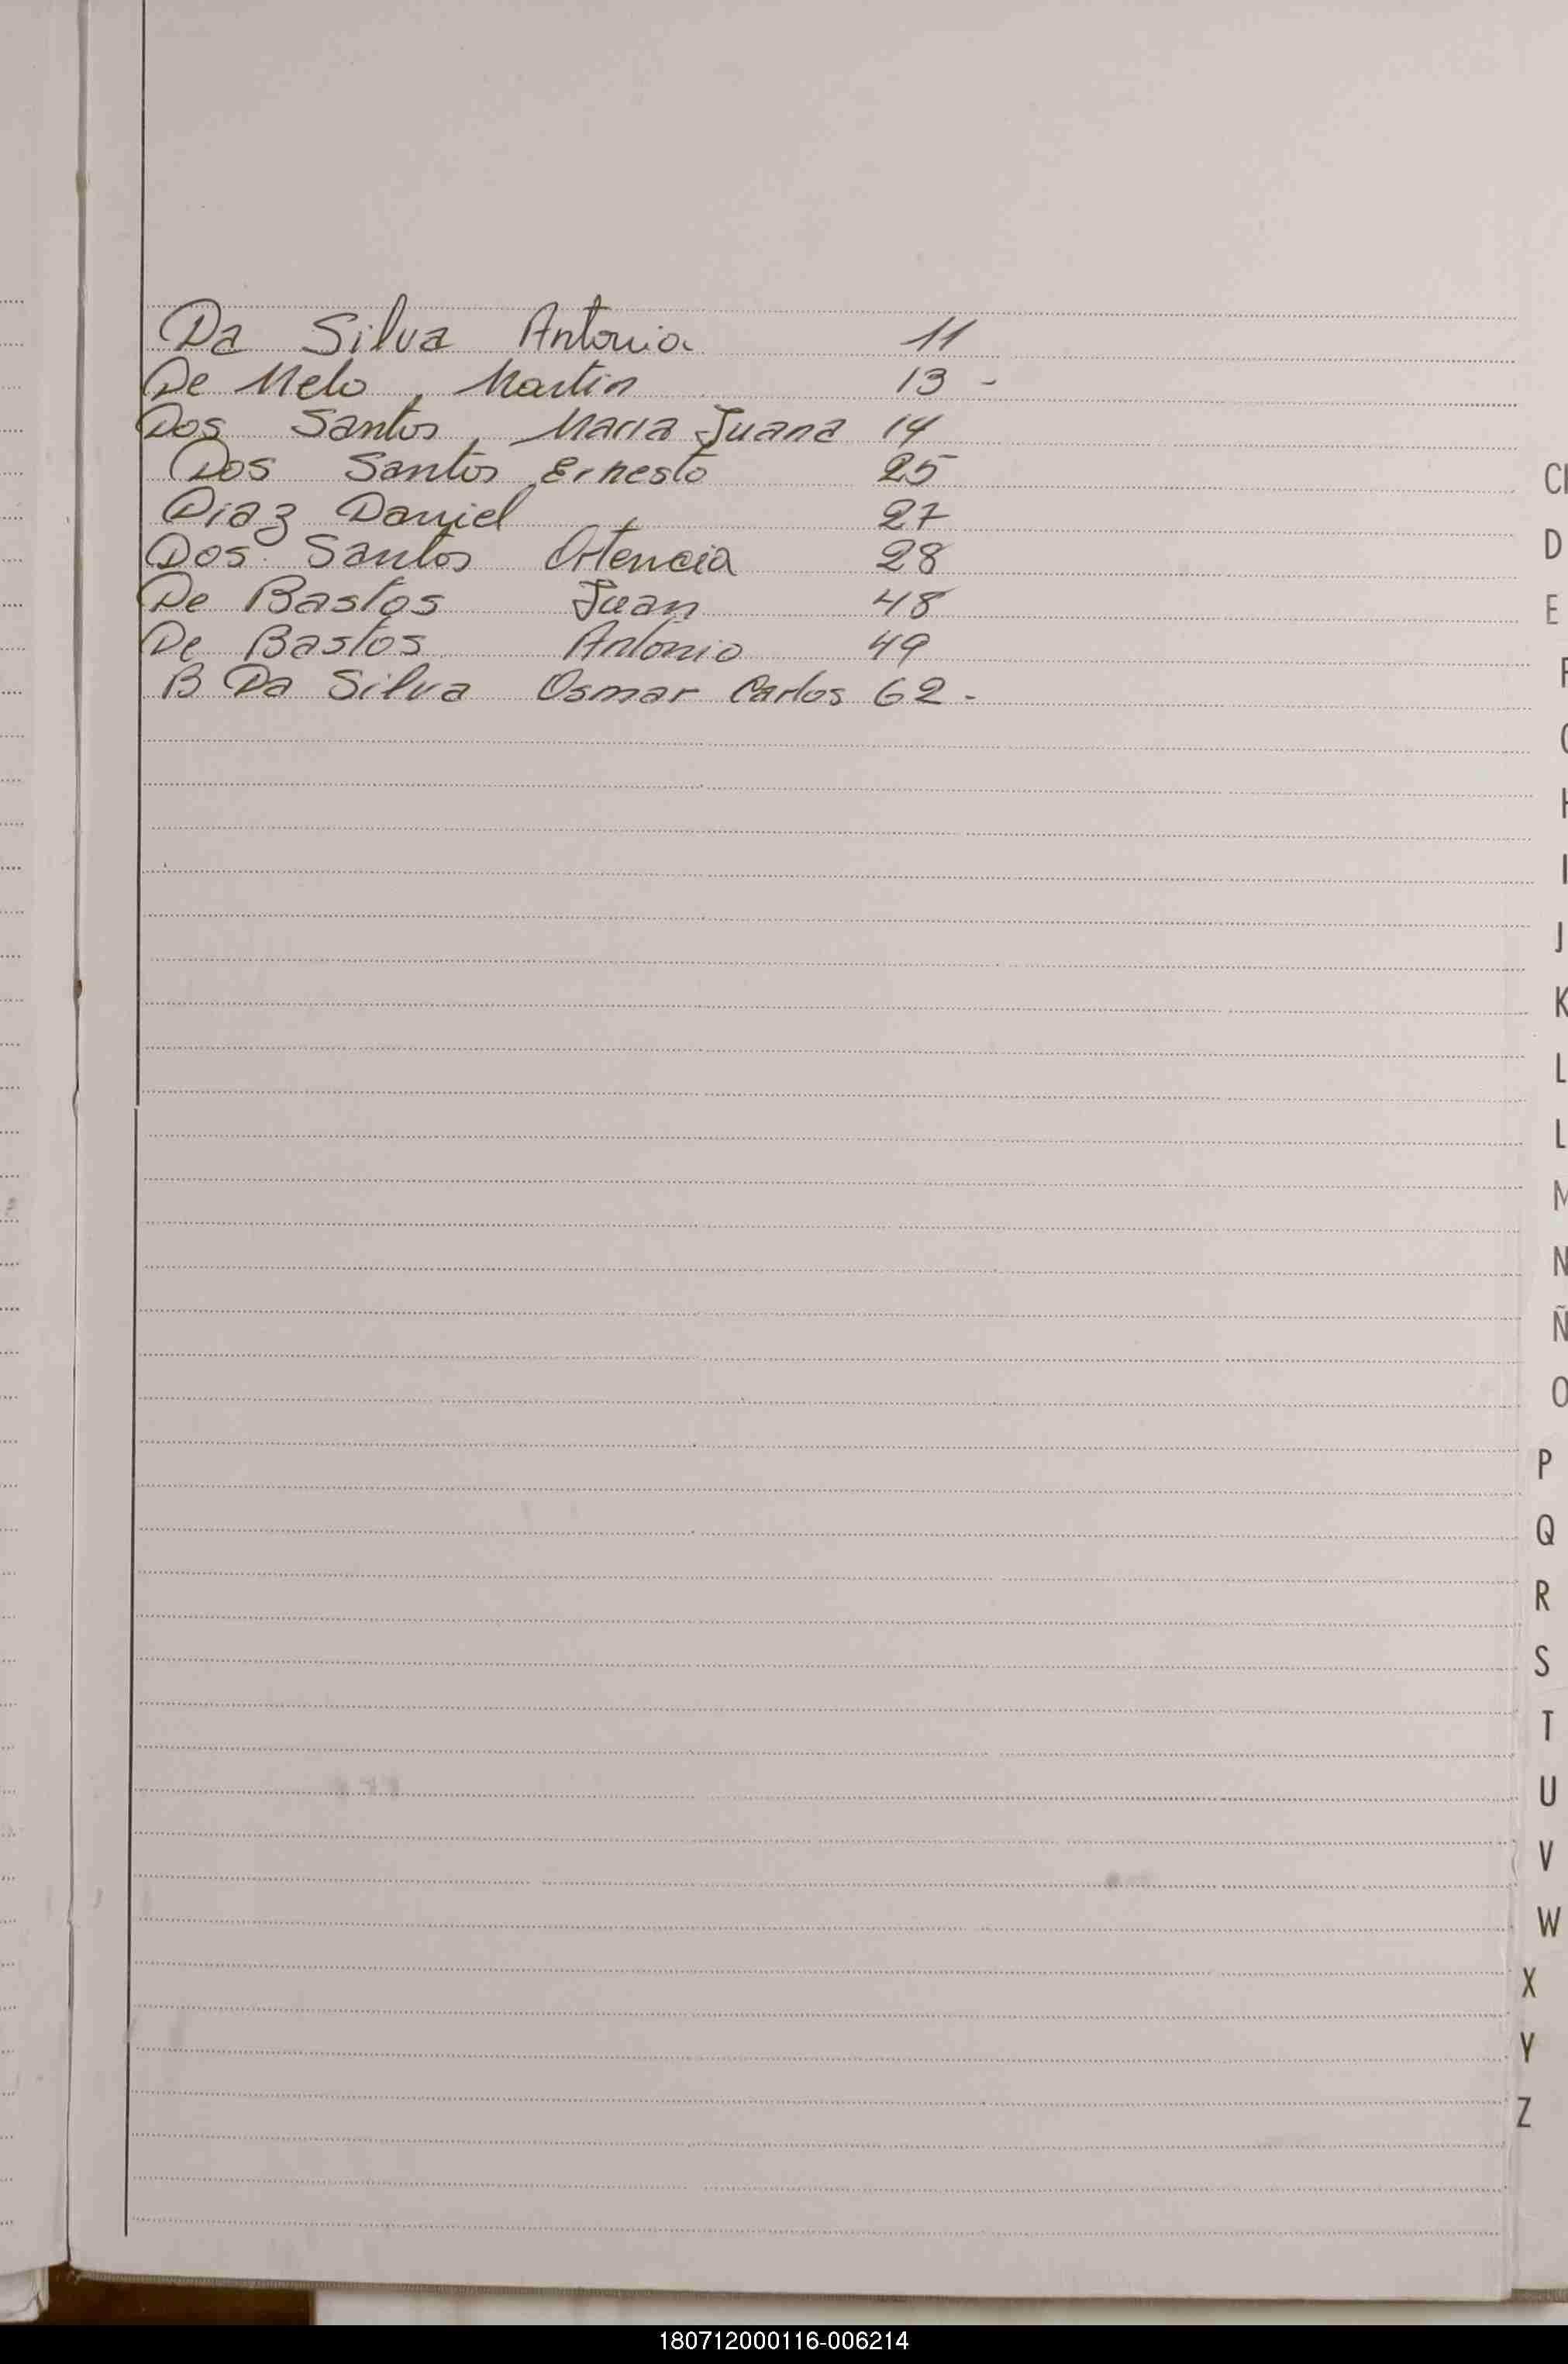 Da Silva Antonia 11
De Melo, Martin 13 -
Dos Santos, Maria Juana 14
Dos Santos, Ernesto 25
Diaz Daniel 27
Dos Santos Ortencia 28
De Bastos Juan 48
De Bastos Antonio 49
B Da Silva Osmar Carlos 62 -
D
E
J
K
L
L
M
N
Ñ
O
P
Q
R
S
T
U
V
W
X
Y
Z
180712000116-006214